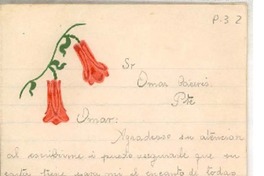 P-3 2
Sr
Omar Cáceres
Pte
Omar:
Agradezco su atencion
al escribirme i puedo asegurarle que su
carta tiene para mi el encanto de todas